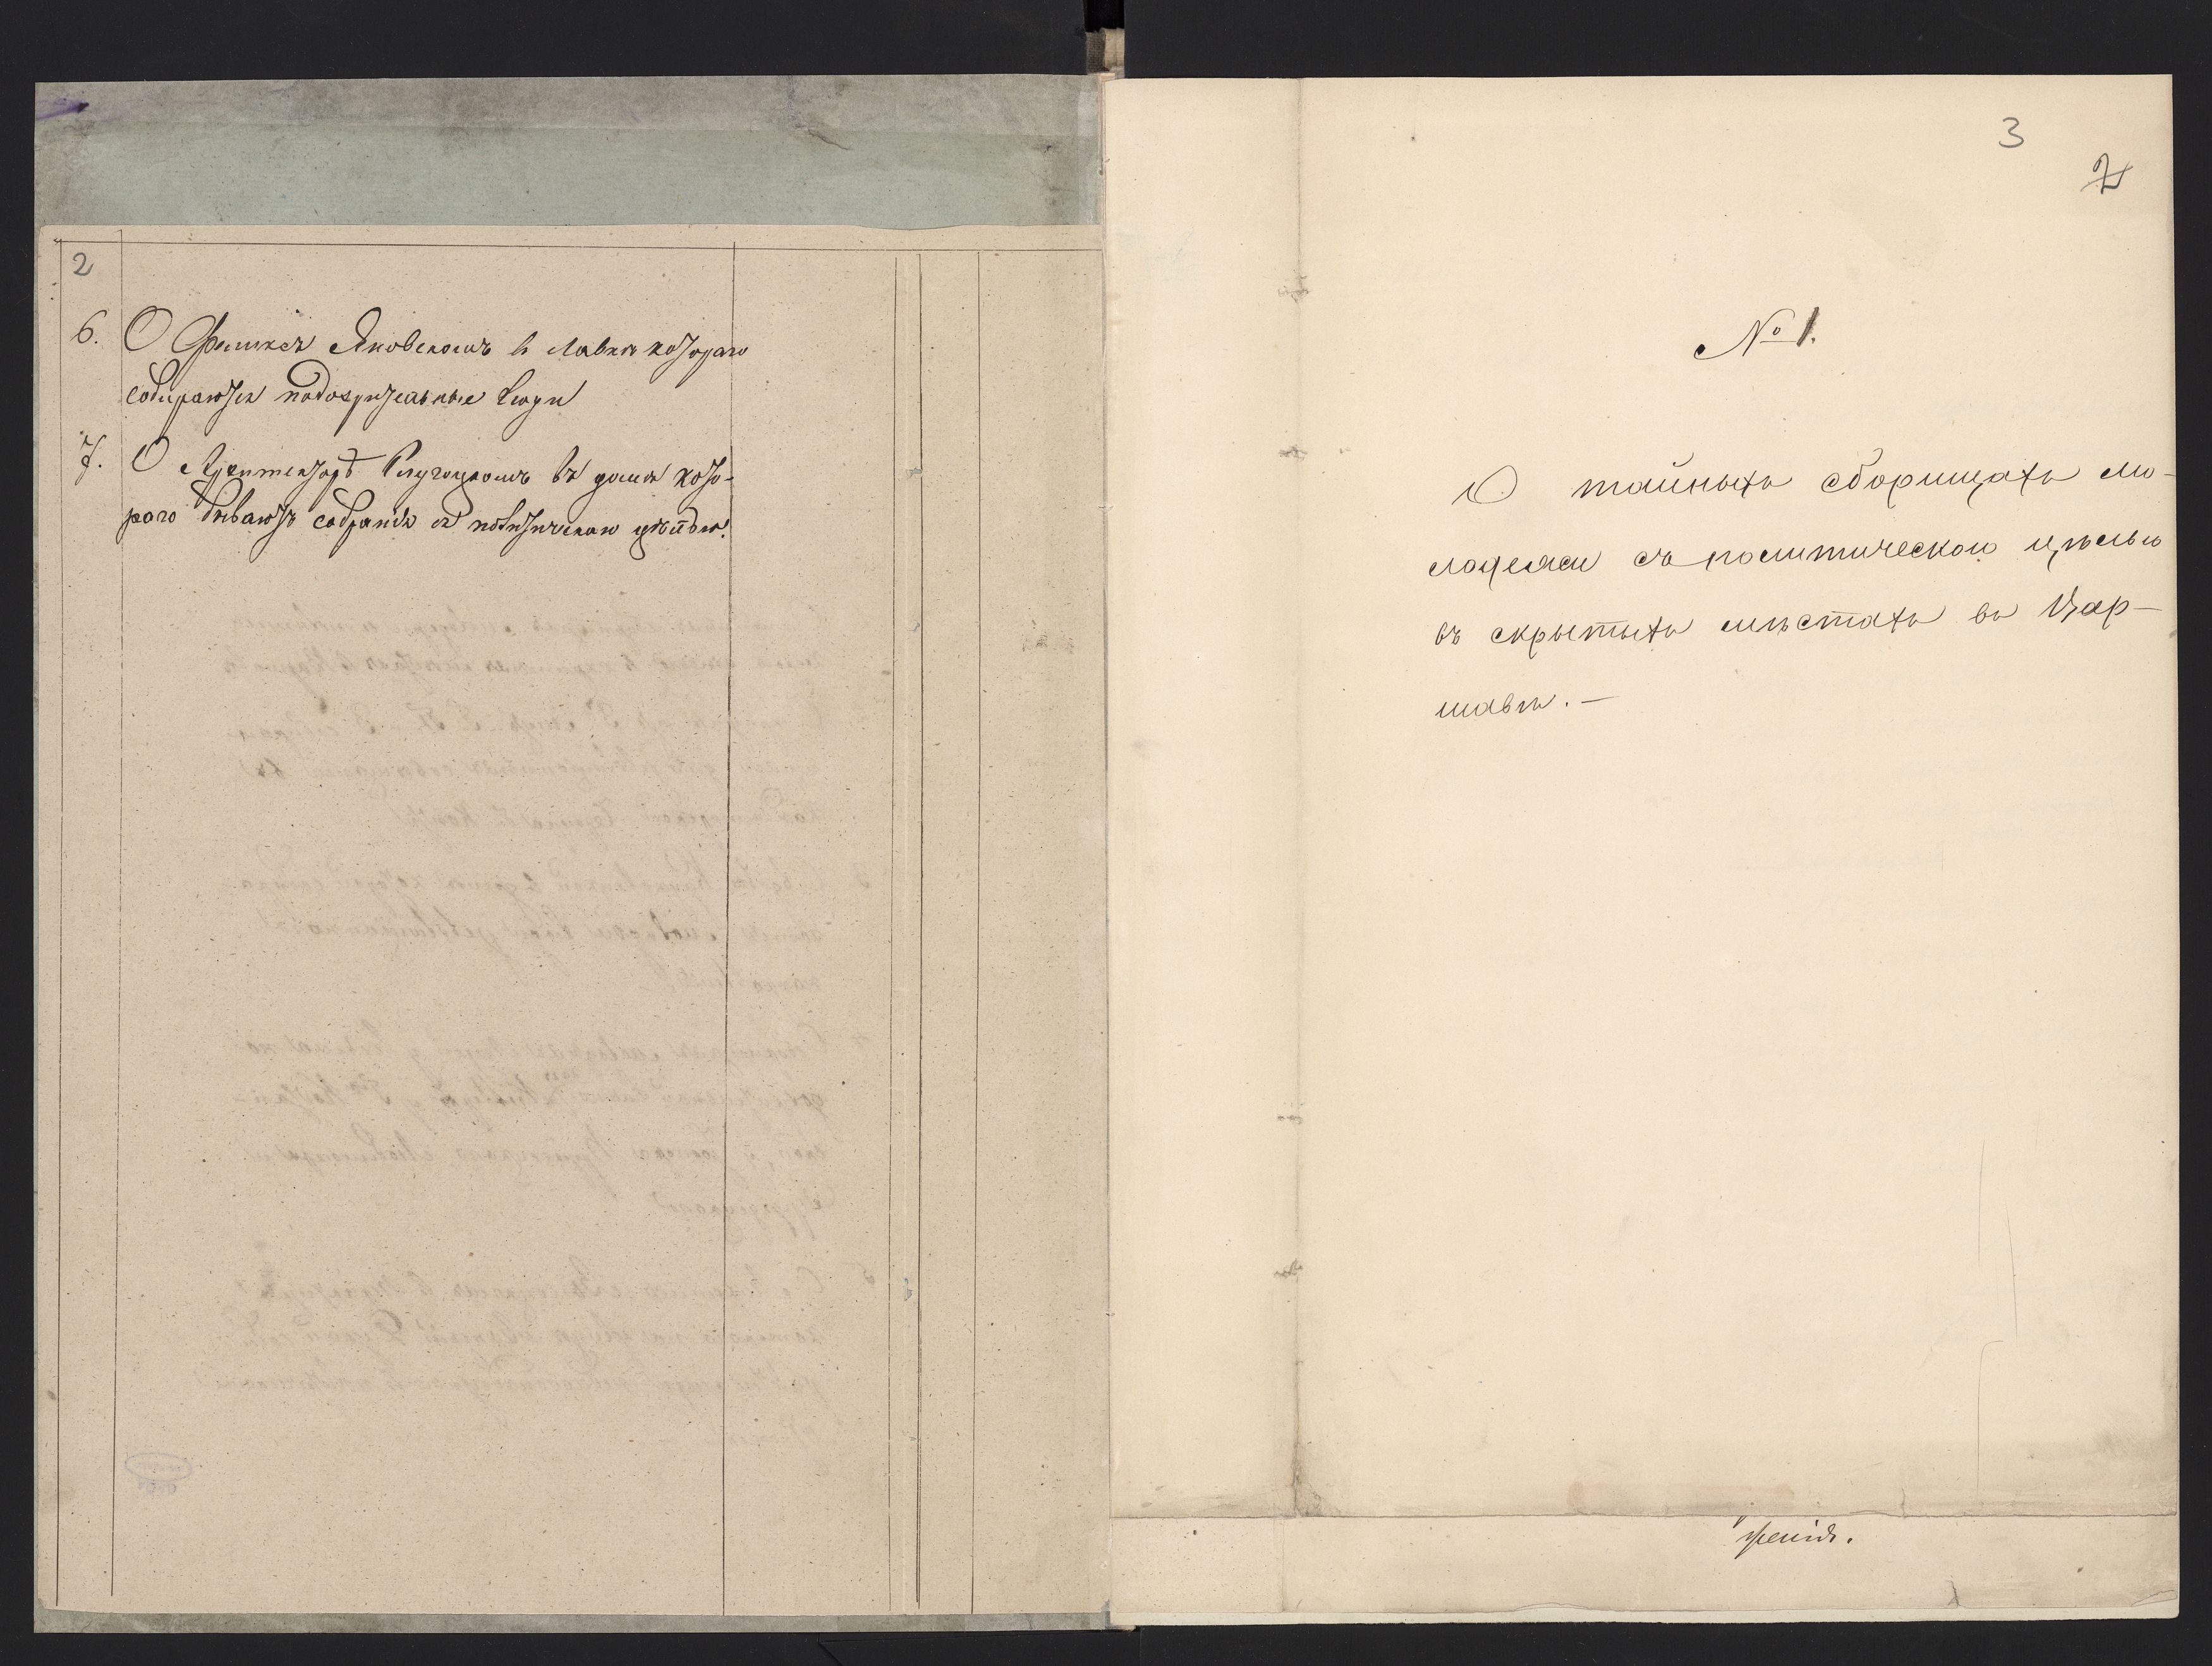 2
6. О Феликсѣ Яновскомъ в лавкѣ котораго
собираются подозрительные люди
7. О Архитекторѣ въ домѣ кото-
раго бываютъ собранія съ политическою цѣлью.
3
2
№ 1.
О тайныхъ сборищахъ мо-
лодежи съ политическою цѣлью
въ скрытыхъ мѣстахъ въ Вар-
шавѣ. —